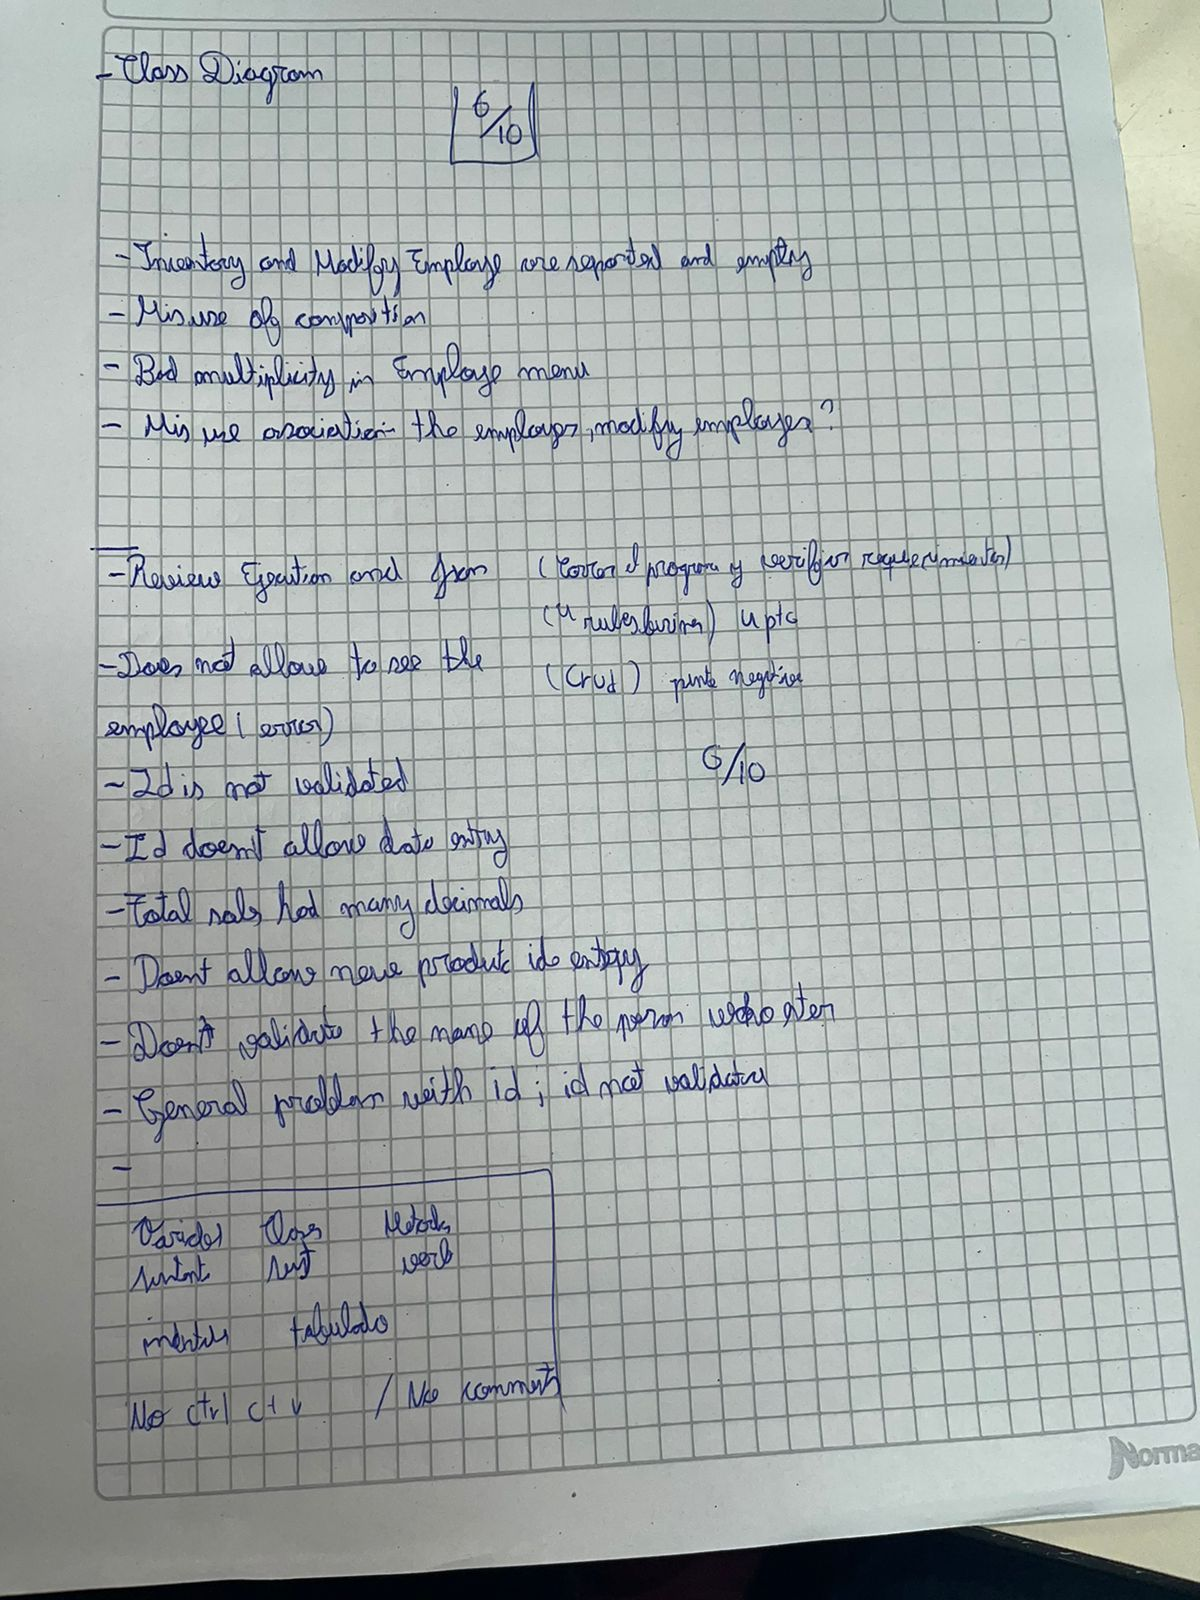 - Class Diagram
6/10
- Inventory and Modify Employe are reported and empty
- Misuse of composition
- Bad multiplicity in Employe menu
- Mis use asociation- the employes, modify employes?
- Review Ejecution and from (Correr el program y verificar requerimientos)
(4 rules busines) 4 pts
- Does not allow to see the
(Crud) punto negativo
employee ( error)
6/10
- Id is not validated
- Id doesn't allow data entry
- total sals had many decimals
- Doent allow new produkt id entry
- Doent validate the name of the person who enter
- General problem with id; id not validated
-
Clas Metods
sust verb
tabulado
No ctrl c + v / No comments
Norma